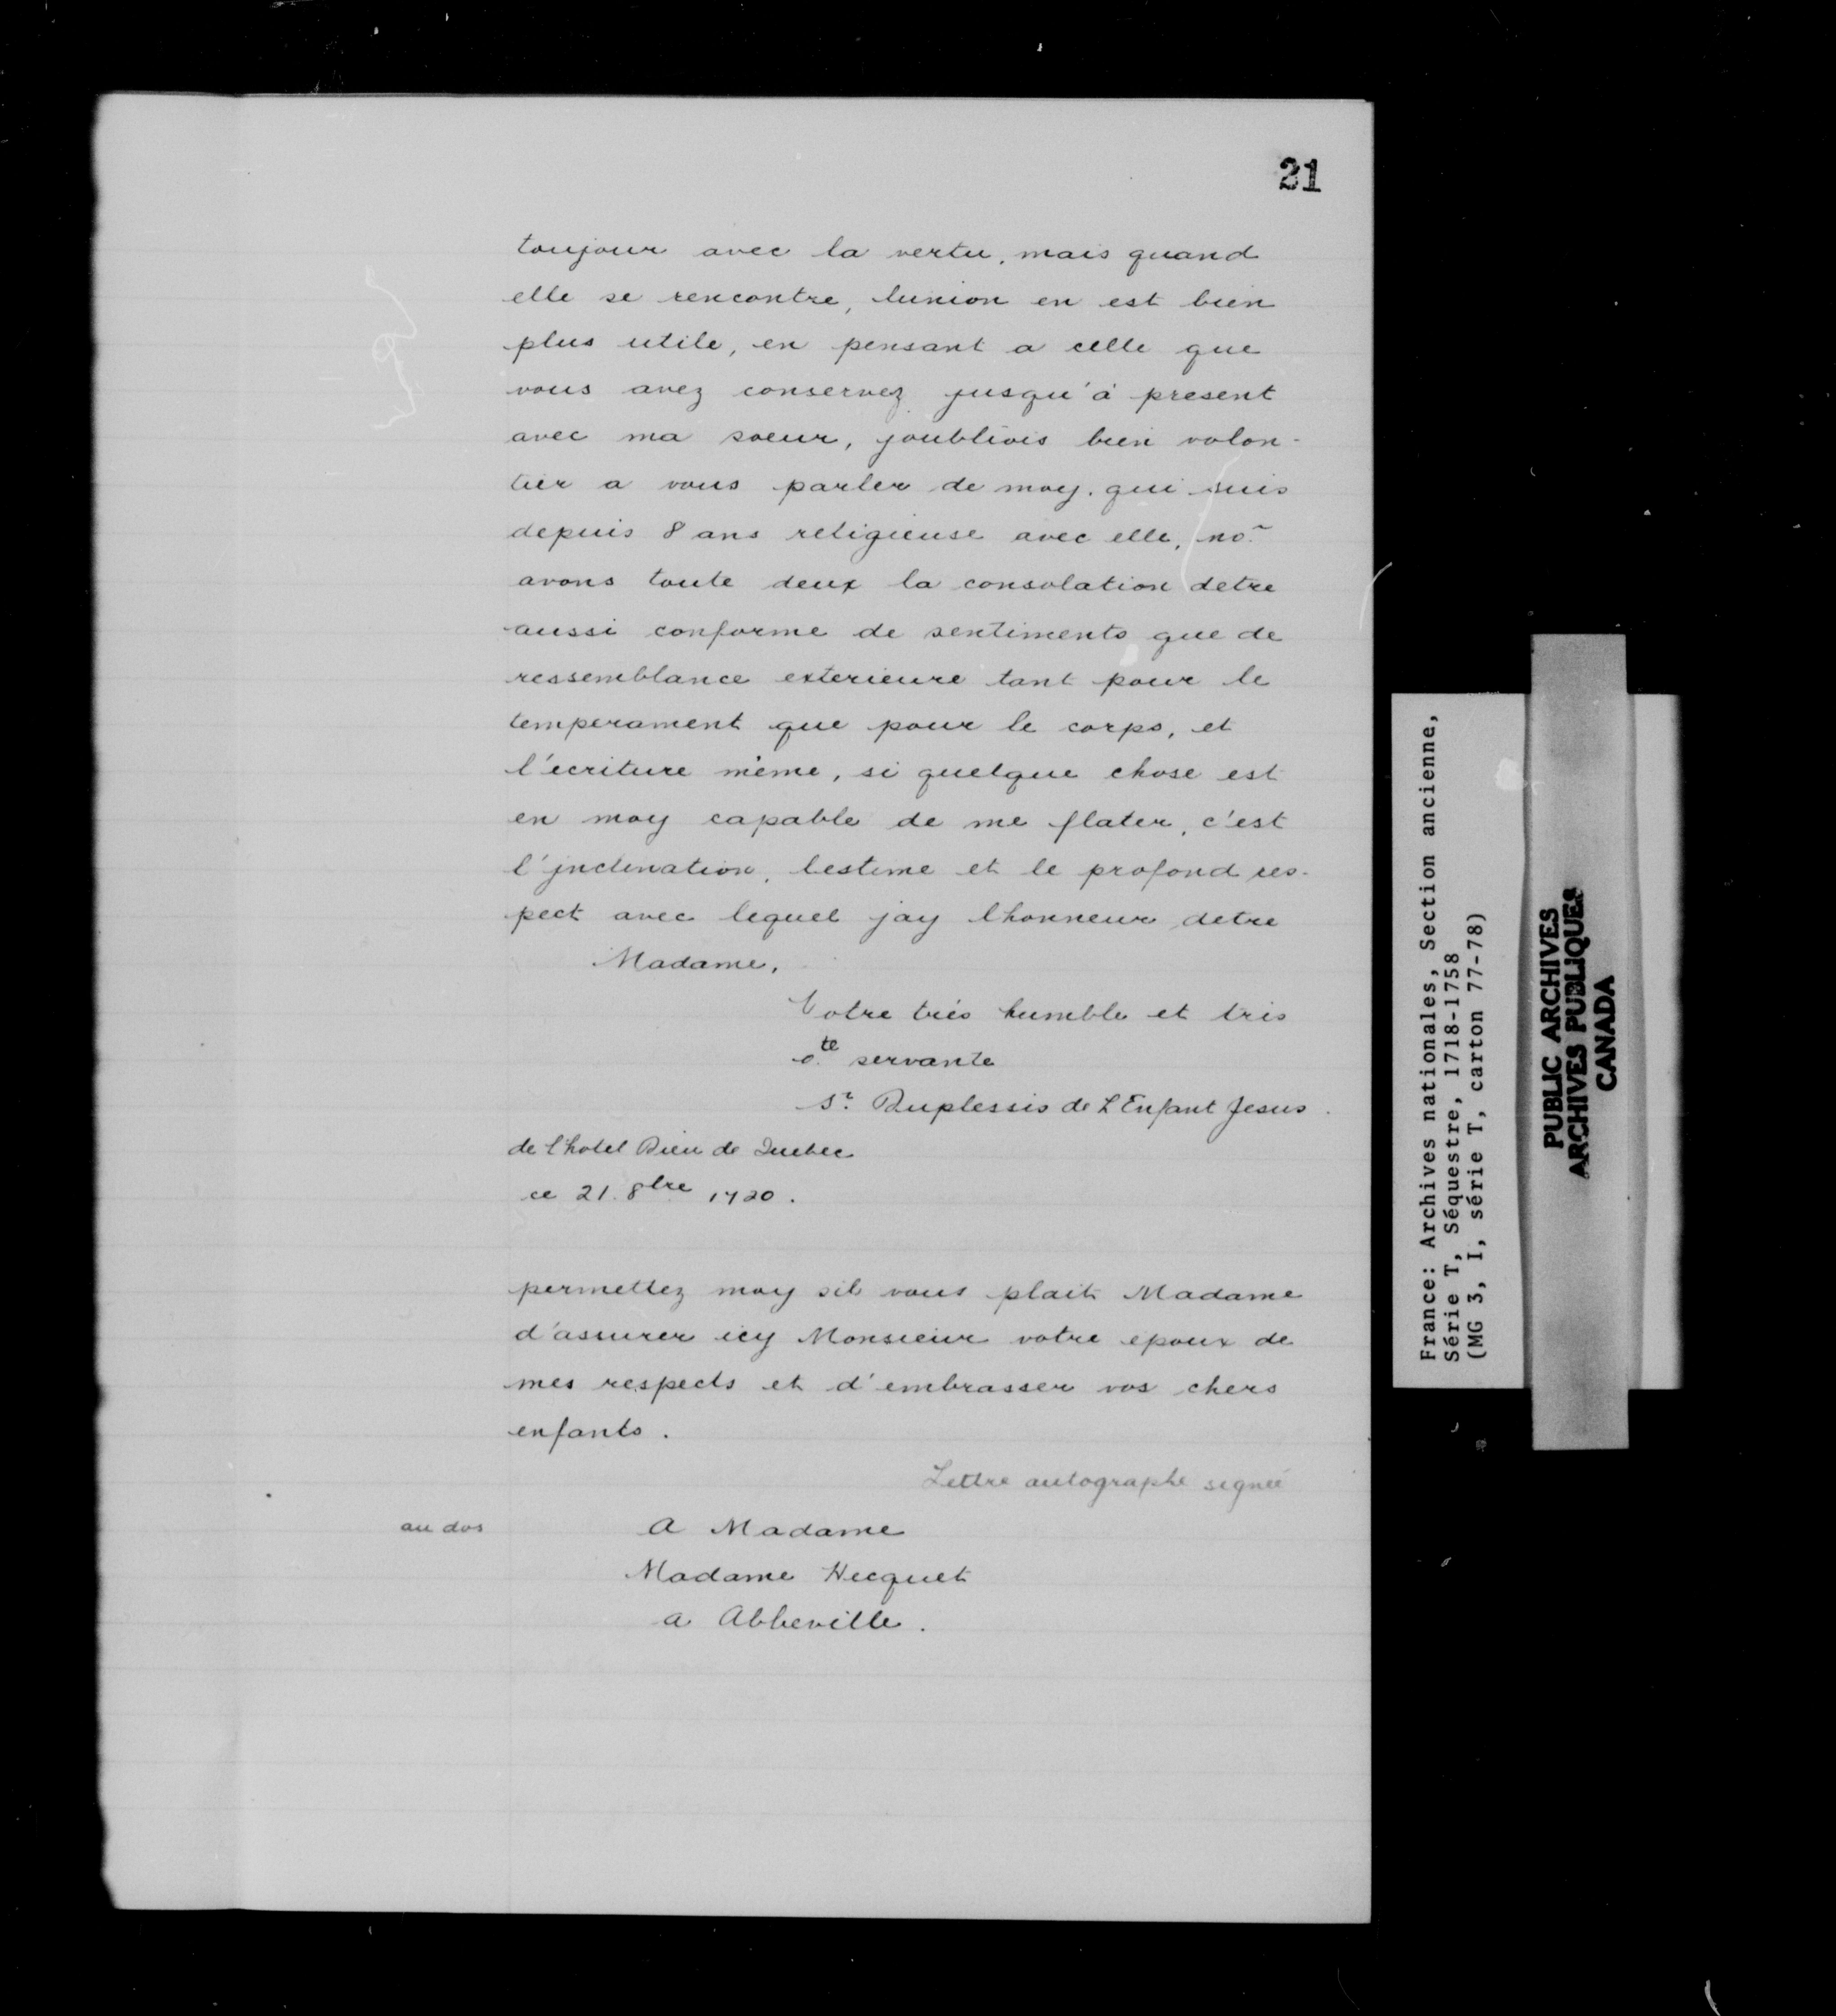 21
toujour avec la vertu, mais quand
elle se rencontre, lunion en est bien
plus utile, en pensant a celle que
vous avez conservez jusqu'à present
avec ma soeur, joubliois bien volon-
tier a vous parler de moy. qui suis
depuis 8 ans religieuse avec elle, no.~
avons toute deux la consolation detre
aussi conforme de sentiments que de
ressemblance exterieure tant pour le
temperament que pour le corps, et
l'ecriture même, si quelque chose est
en moy capable de me flater, c'est
l'jnclination, lestime et le profond res-
pect avec lequel jay lhonneur detre
Madame,
Votre très humble et très
o.te servante
Sr. Duplessis de L Enfant Jesus.
de l'hotel Dieu de Quebec
ce 21. 8bre 1720.
permettez moy sil vous plait Madame
d'assurer icy Monsieur votre epoux de
mes respects et d'embrasser vos chers
enfants.
Lettre autographe signée
au dos
A Madame
Madame Hecquet
a Abbeville.
France: Archives nationales, Section ancienne,
Série T, Séquestre, 1718-1758
(MG 3, I, série T, carton 77-78)
PUBLIC ARCHIVES
ARCHIVES PUBLIQUES
CANADA